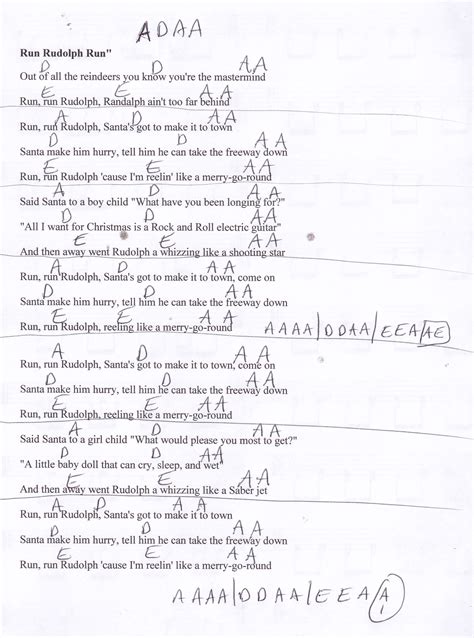 A D A A
Run Rudolph Run"
D D A A
Out of all the reindeers you know you're the mastermind
E E A A
Run, run Rudolph, Randalph ain't too far behind
A D A A
Run, run Rudolph, Santa's got to make it to town
D D A A
Santa make him hurry, tell him he can take the freeway down
E E A A
Run, run Rudolph 'cause I'm reelin' like a merry-go-round
A D A A
Said Santa to a boy child "What have you been longing for?"
D D A A
"All I want for Christmas is a Rock and Roll electric guitar"
E E A A
And then away went Rudolph a whizzing like a shooting star
A D A A
Run, run Rudolph, Santa's got to make it to town, come on
D D A A
Santa make him hurry, tell him he can take the freeway down
E E A A
Run, run Rudolph, reeling like a merry-go-round
A A A A | D D A A / E E A A E
A D A A
Run, run Rudolph, Santa's got to make it to town, come on
D D A A
Santa make him hurry, tell him he can take the freeway down
E E A A
Run, run Rudolph, reeling like a merry-go-round
A D A A
Said Santa to a girl child "What would please you most to get?"
D D A A
"A little baby doll that can cry, sleep, and wet"
E E A A
And then away went Rudolph a whizzing like a Saber jet
A D A A
Run, run Rudolph, Santa's got to make it to town
D D A A
Santa make him hurry, tell him he can take the freeway down
E E A A
Run, run Rudolph 'cause I'm reelin' like a merry-go-round
A A A A | D D A A / E E A A